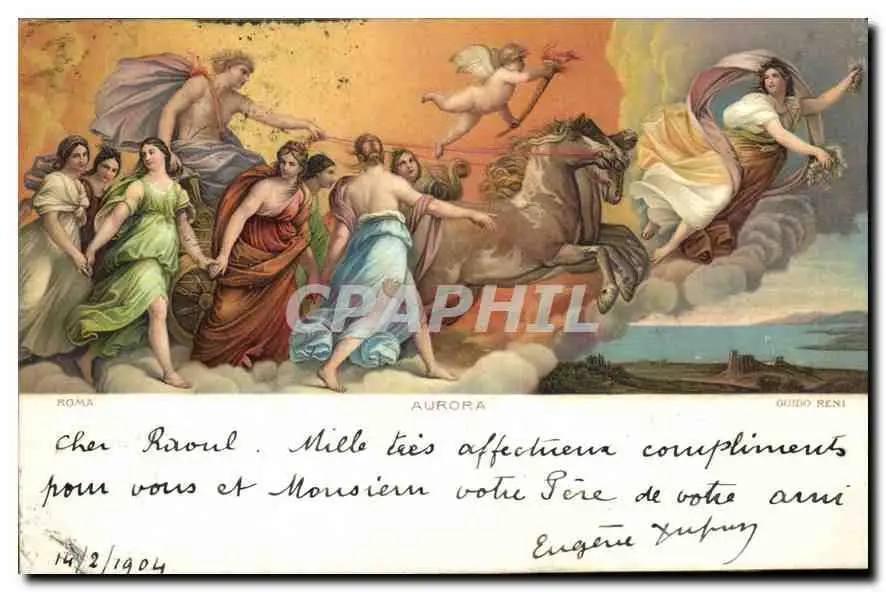 CPAPHIL
ROMA AURORA GUIDO RENI
Cher Raoul. Mille très affectueux compliments
pour vous et Monsieur votre Père de votre ami
Eugène Dupuy
14/2/1904